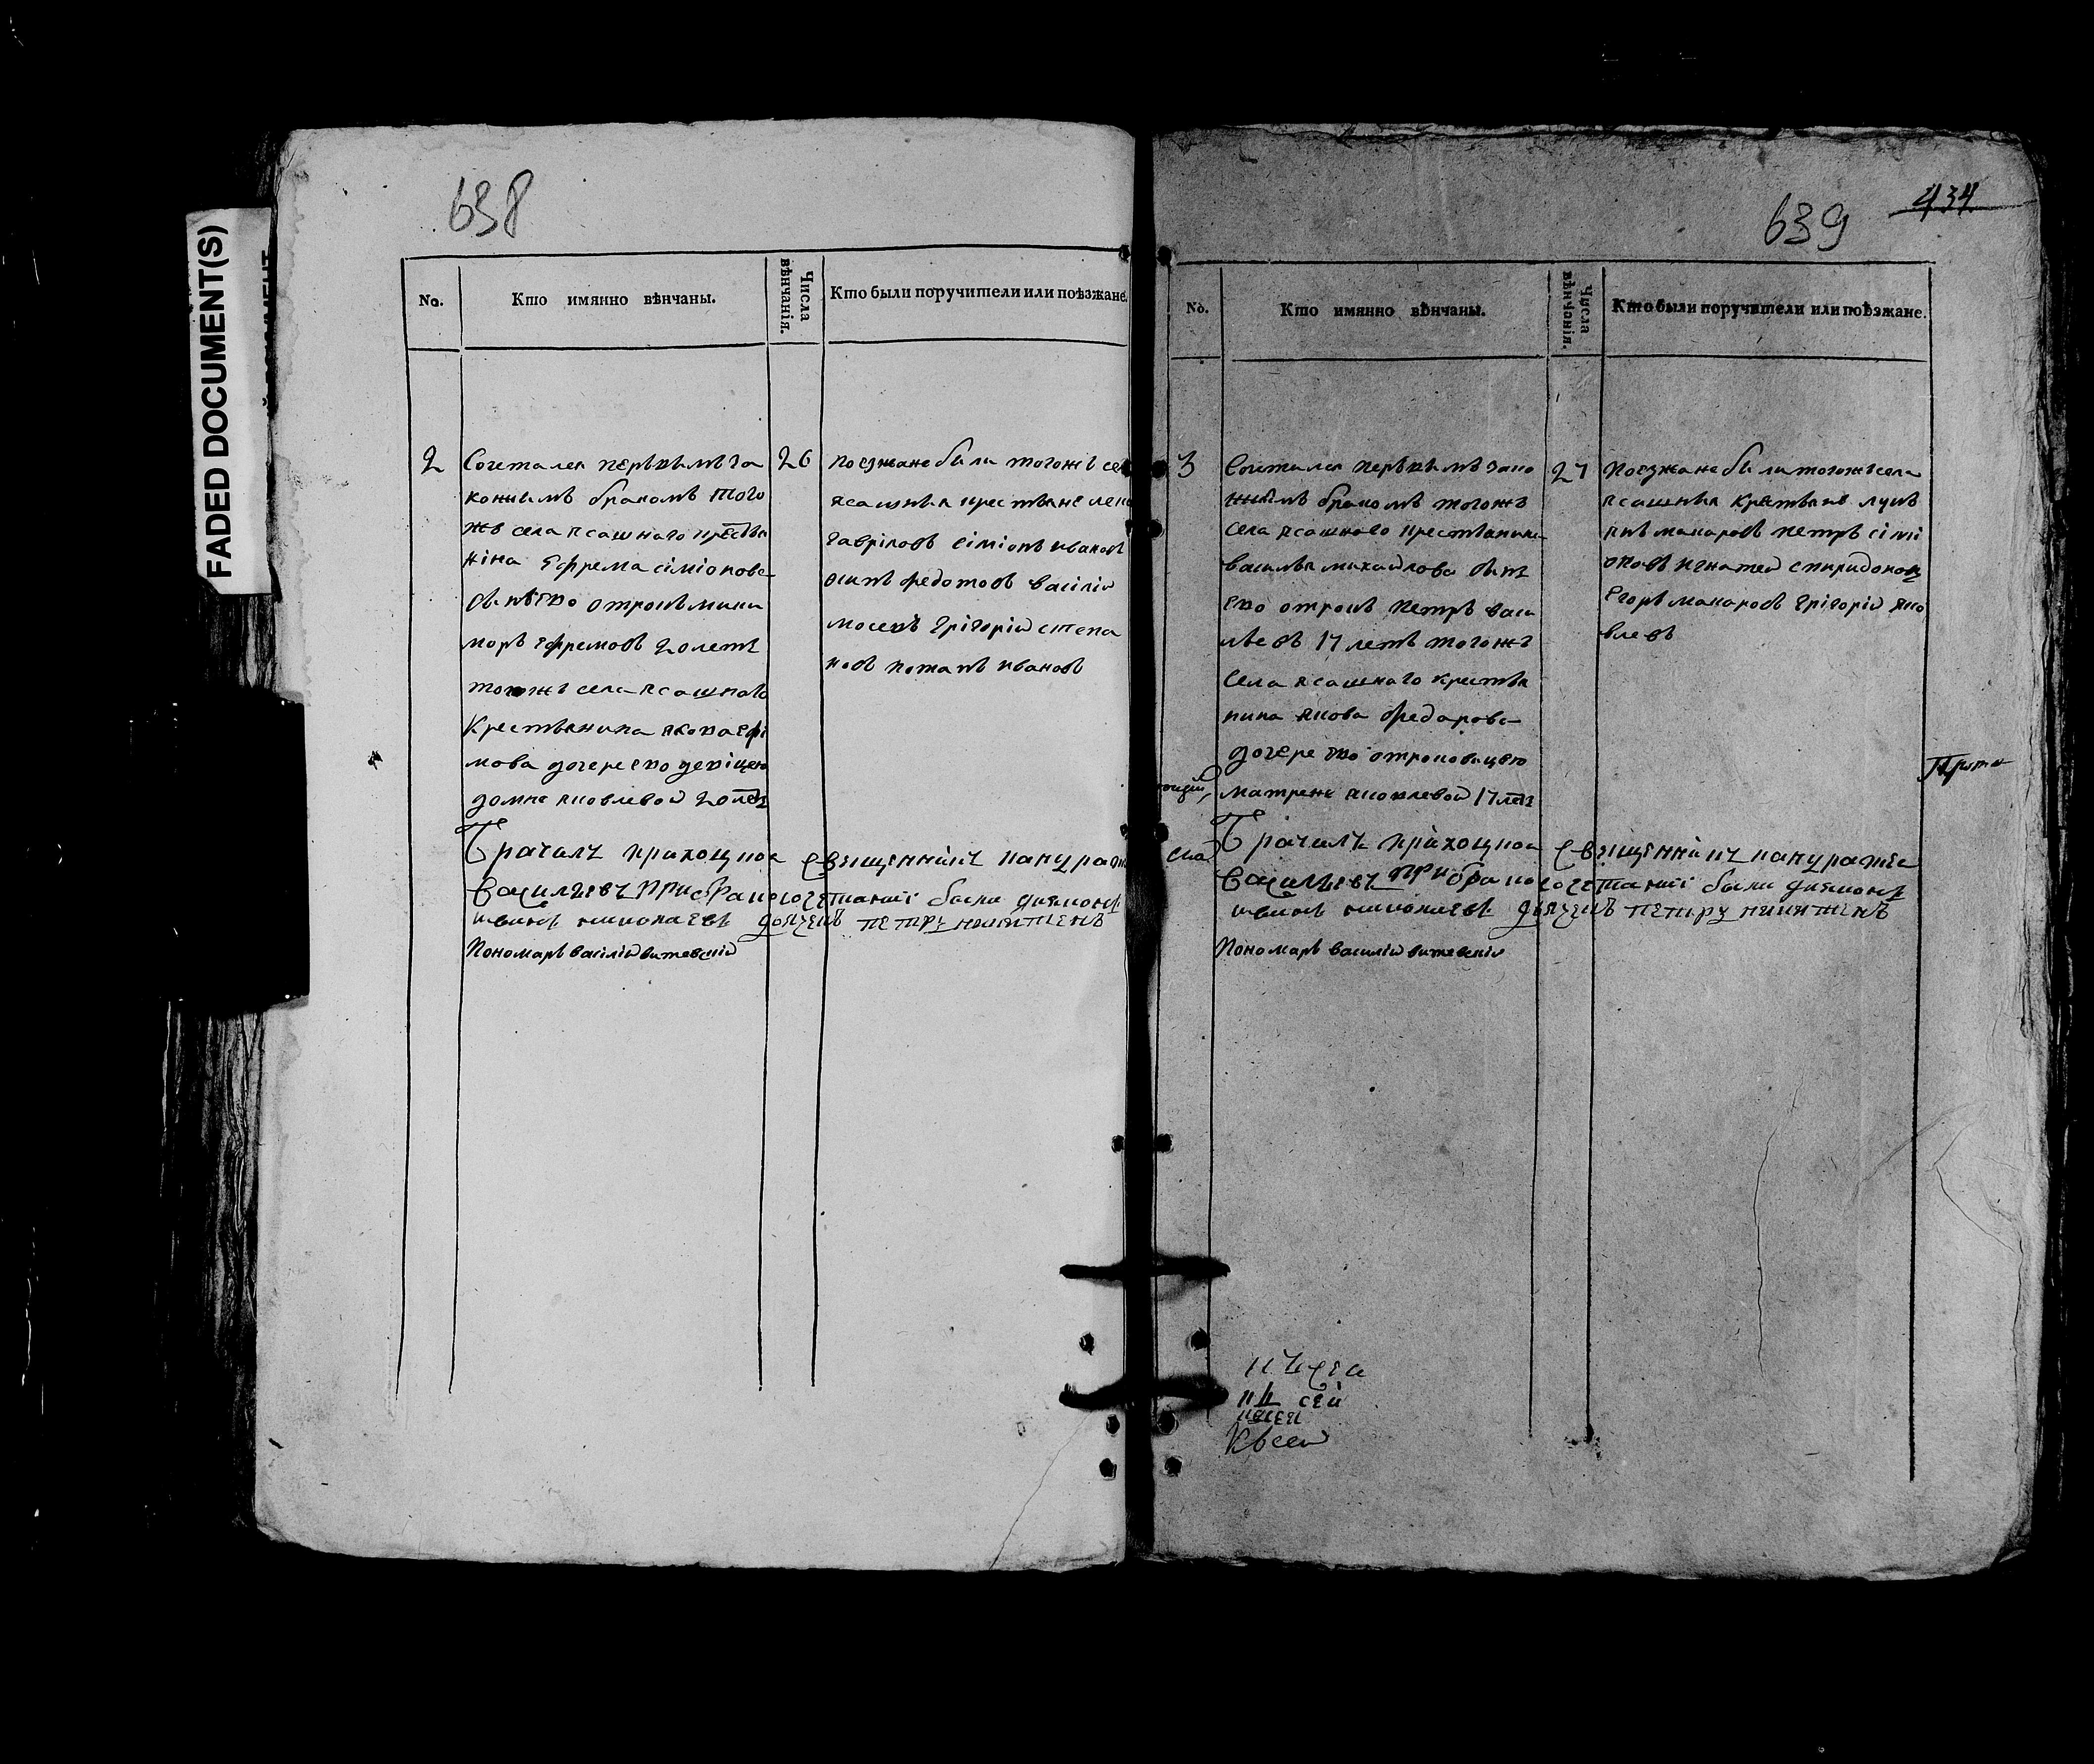 FADED DOCUMENT(S)
638
No.
Кто имянно вѣнчаны.
Числа вѣнчанія.
Кто были поручители или поѣзжане.
2
Сочетался первымъ за
коннымъ бракомъ того
жъ села ясашнаго крестья
нина Ефрема сіміонова
сынъ ево отрокъ
ефремовъ 20 летъ
тогожъ села ясашнаго
Крестьянина якова ефі
мова дочере ево девіцею
домне яковлевой 20 летъ
26
поезжане были тогожъ
ясашныя крестьяне
гаврiловъ сiмiонъ ивановъ
осипъ федотовъ васiлiй
мосеевъ грiгорiй степа
новъ потапъ ивановъ
Брачалъ приходцкой священникъ
Васильевъ при бракосочетаніи были дияконъ
иванъ николаевъ дьячекъ петръ никитинъ
Пономарь васiлiй витевскiй
639
434
No.
Кто имянно вѣнчаны.
Числа вѣнчанія.
Кто были поручители или поѣзжане.
3
Сочетался первымъ зако
ннымъ бракомъ тогожъ
села ясашного крестьянина
василья михайлова сынъ
ево отрокъ петръ васи
льевъ 17 летъ тогожъ
села ясашнаго крестья
нина якова федарова
дочере ево отроковицею
матрене яковлевой 17 летъ
27
Поезжане были тогожъ села
ясашныя крестьяне лукъ
янъ макаровъ петръ сiмi
оновъ игнатей спиридонов
Егоръ макаровъ грiгорiй яко
влевъ
Брачалъ приходцкой священникъ
Васильевъ при бракосочетаніи были дияконъ
иванъ николаевъ дьячекъ петръ никитинъ
Пономарь василiй витевскiй
К всей